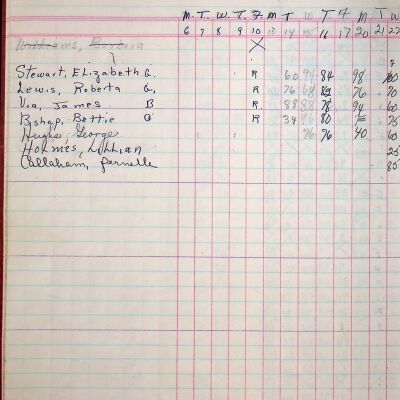 M. T. W. T. F. M T W T F M T W
6 7 8 9 10 13 14 15 16 17 20 21 22
Williams, Barbara X
Stewart, Elizabeth G. R 60 94 84 98
Lewis, Roberta G, R 76 68 76 70
Via, James B R 88 88 94 60
Bishop, Bettie G R 34 80 75
Hughes, George 76 76 40 60
Holmes, Lillian 25
Callaham, Pernelle 80